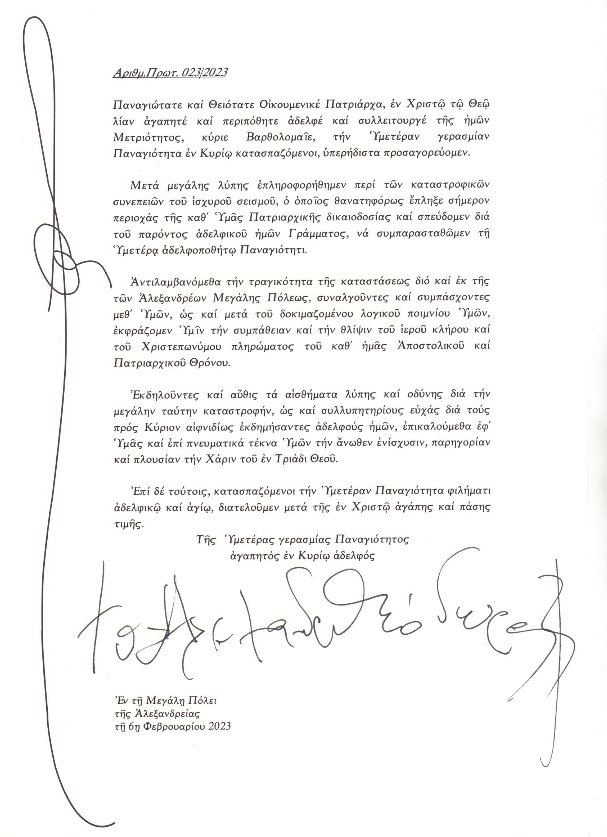 Ἀριθμ.Πρωτ. 023/2023
Παναγιώτατε καί Θειότατε Οἰκουμενικέ Πατριάρχα, ἐν Χριστῷ τῷ Θεῷ
λίαν ἀγαπητέ καί περιπόθητε ἀδελφέ καί συλλειτουργέ τῆς ἡμῶν
Μετριότητος, κύριε Βαρθολομαῖε, τήν Ὑμετέραν γερασμίαν
Παναγιότητα ἐν Κυρίῳ κατασπαζόμενοι, ὑπερήδιστα προσαγορεύομεν.
Μετά μεγάλης λύπης ἐπληροφορήθημεν περί τῶν καταστροφικῶν
συνεπειῶν τοῦ ἰσχυροῦ σεισμοῦ, ὁ ὁποῖος θανατηφόρως ἔπληξε σήμερον
περιοχάς τῆς καθ' Ὑμᾶς Πατριαρχικῆς δικαιοδοσίας καί σπεύδομεν διά
τοῦ παρόντος ἀδελφικοῦ ἡμῶν Γράμματος, νά συμπαρασταθῶμεν τῇ
Ὑμετέρᾳ ἀδελφοποθήτῳ Παναγιότητι.
Ἀντιλαμβανόμεθα τήν τραγικότητα τῆς καταστάσεως διό καί ἐκ τῆς
τῶν Ἀλεξανδρέων Μεγάλης Πόλεως, συναλγοῦντες καί συμπάσχοντες
μεθ' Ὑμῶν, ὡς καί μετά τοῦ δοκιμαζομένου λογικοῦ ποιμνίου Ὑμῶν,
ἐκφράζομεν Ὑμῖν τήν συμπάθειαν καί τήν θλίψιν τοῦ ἱεροῦ κλήρου καί
τοῦ Χριστεπωνύμου πληρώματος τοῦ καθ' ἡμᾶς Ἀποστολικοῦ καί
Πατριαρχικοῦ Θρόνου.
Ἐκδηλοῦντες καί αὖθις τά αἰσθήματα λύπης καί ὀδύνης διά τήν
μεγάλην ταύτην καταστροφήν, ὡς καί συλλυπητηρίους εὐχάς διά τούς
πρός Κύριον αἰφνιδίως ἐκδημήσαντες ἀδελφούς ἡμῶν, ἐπικαλούμεθα ἐφ'
Ὑμᾶς καί ἐπί πνευματικά τέκνα Ὑμῶν τήν ἄνωθεν ἐνίσχυσιν, παρηγορίαν
καί πλουσίαν τήν Χάριν τοῦ ἐν Τριάδι Θεοῦ.
Ἐπί δέ τούτοις, κατασπαζόμενοι τήν Ὑμετέραν Παναγιότητα φιλήματι
ἀδελφικῷ καί ἁγίῳ, διατελοῦμεν μετά τῆς ἐν Χριστῷ ἀγάπης καί πάσης
τιμῆς.
Τῆς Ὑμετέρας γερασμίας Παναγιότητος
ἀγαπητός ἐν Κυρίῳ ἀδελφός
Ἐν τῇ Μεγάλῃ Πόλει
τῆς Ἀλεξανδρείας
τῇ 6ῃ Φεβρουαρίου 2023